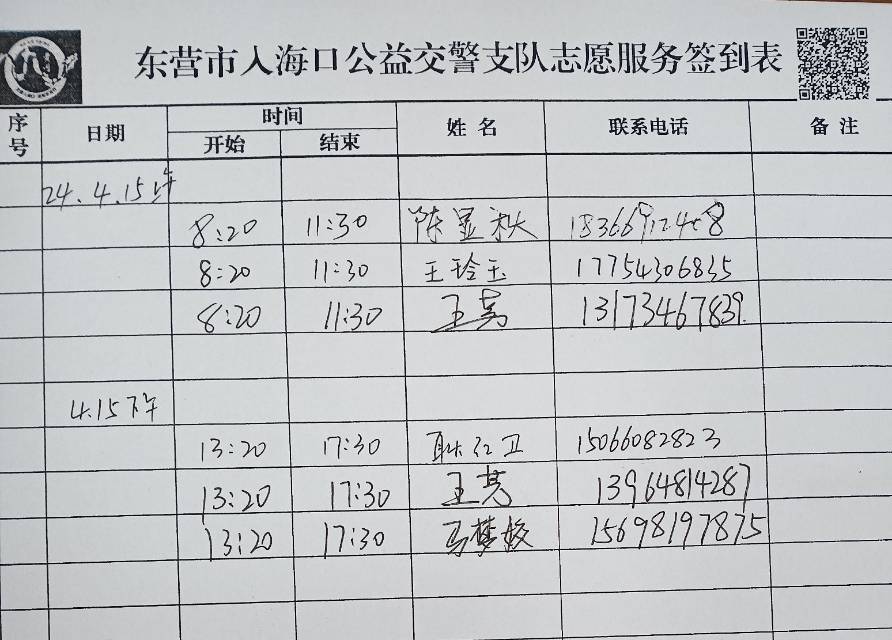 东营市入海口公益交警支队志愿服务签到表
序号 日期 时间 姓名 联系电话 备注
开始 结束
24.4.15上午
8:20 11:30 陈显秋
8:20 11:30 王玲玉 17754306835
8:20 11:30 王 13173467839.
4.15下午
13:20 17:30 耿红卫 15066082823
13:20 17:30 王 13964814287
13:20 17:30 马梦姣 15698197875